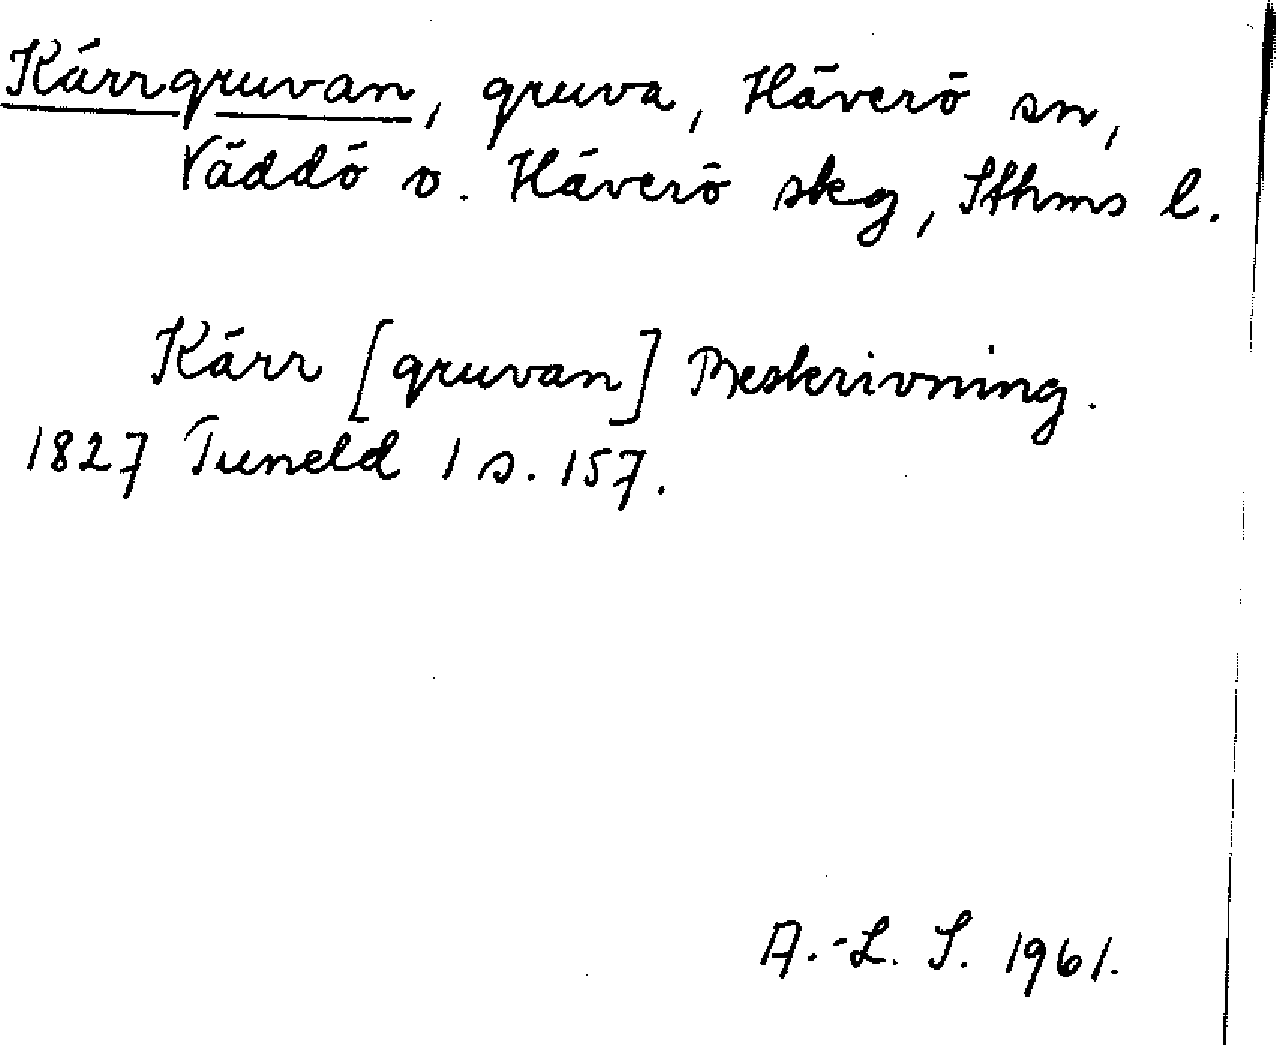 Kärrgruvan, gruva, Häverö sn,
Väddö o. Häverö skg, Sthms l.
Kärr [gruvan] Beskrivning.
1827 Tuneld 1 s. 157.
A.-L. S. 1961.